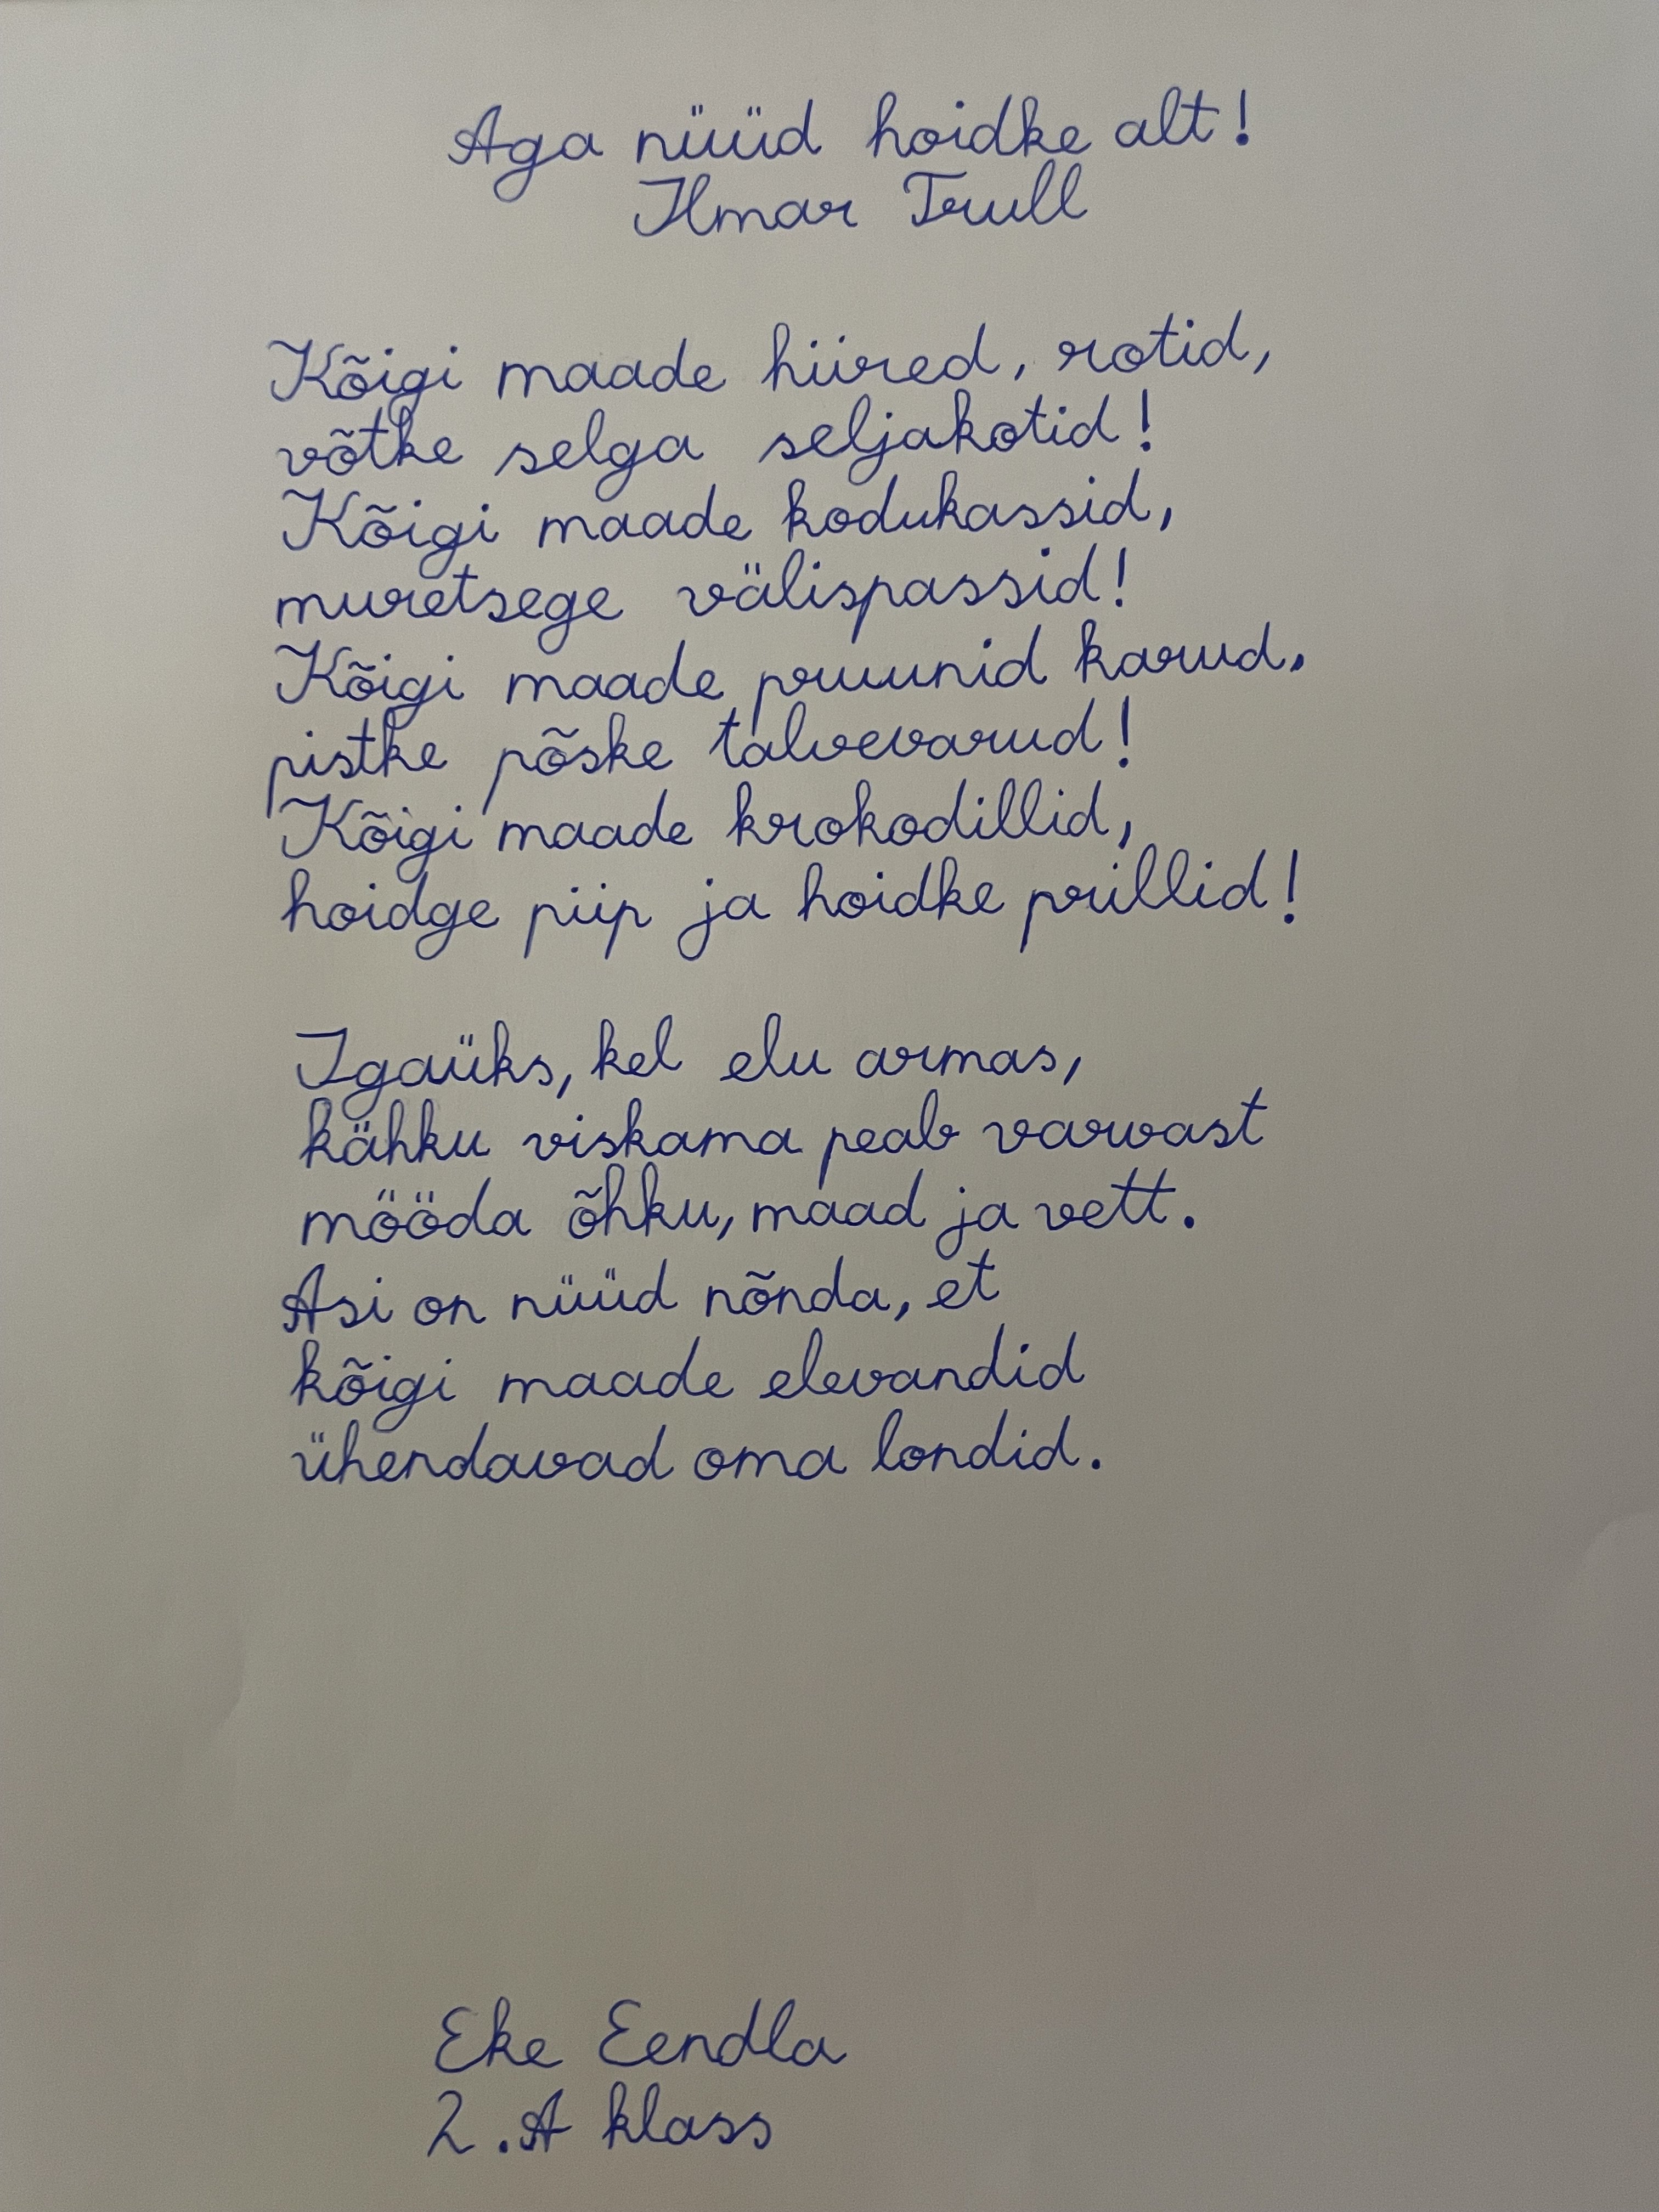 Aga nüüd hoidke alt!
Ilmar Trull
Kõigi maade hiired, rotid,
võtke selga seljakotid!
Kõigi maade kodukassid,
muretsege välispassid!
Kõigi maade pruunid karud,
pistke põske talvevarud!
Kõigi maade krokodillid,
hoidge piip ja hoidke prillid!
Igaüks, kel elu armas,
kähku viskama peab varvast
mööda õhku, maad ja vett.
Asi on nüüd nõnda, et
kõigi maade elevandid
ühendavad oma londid.
Eke Eendla
2.A klass